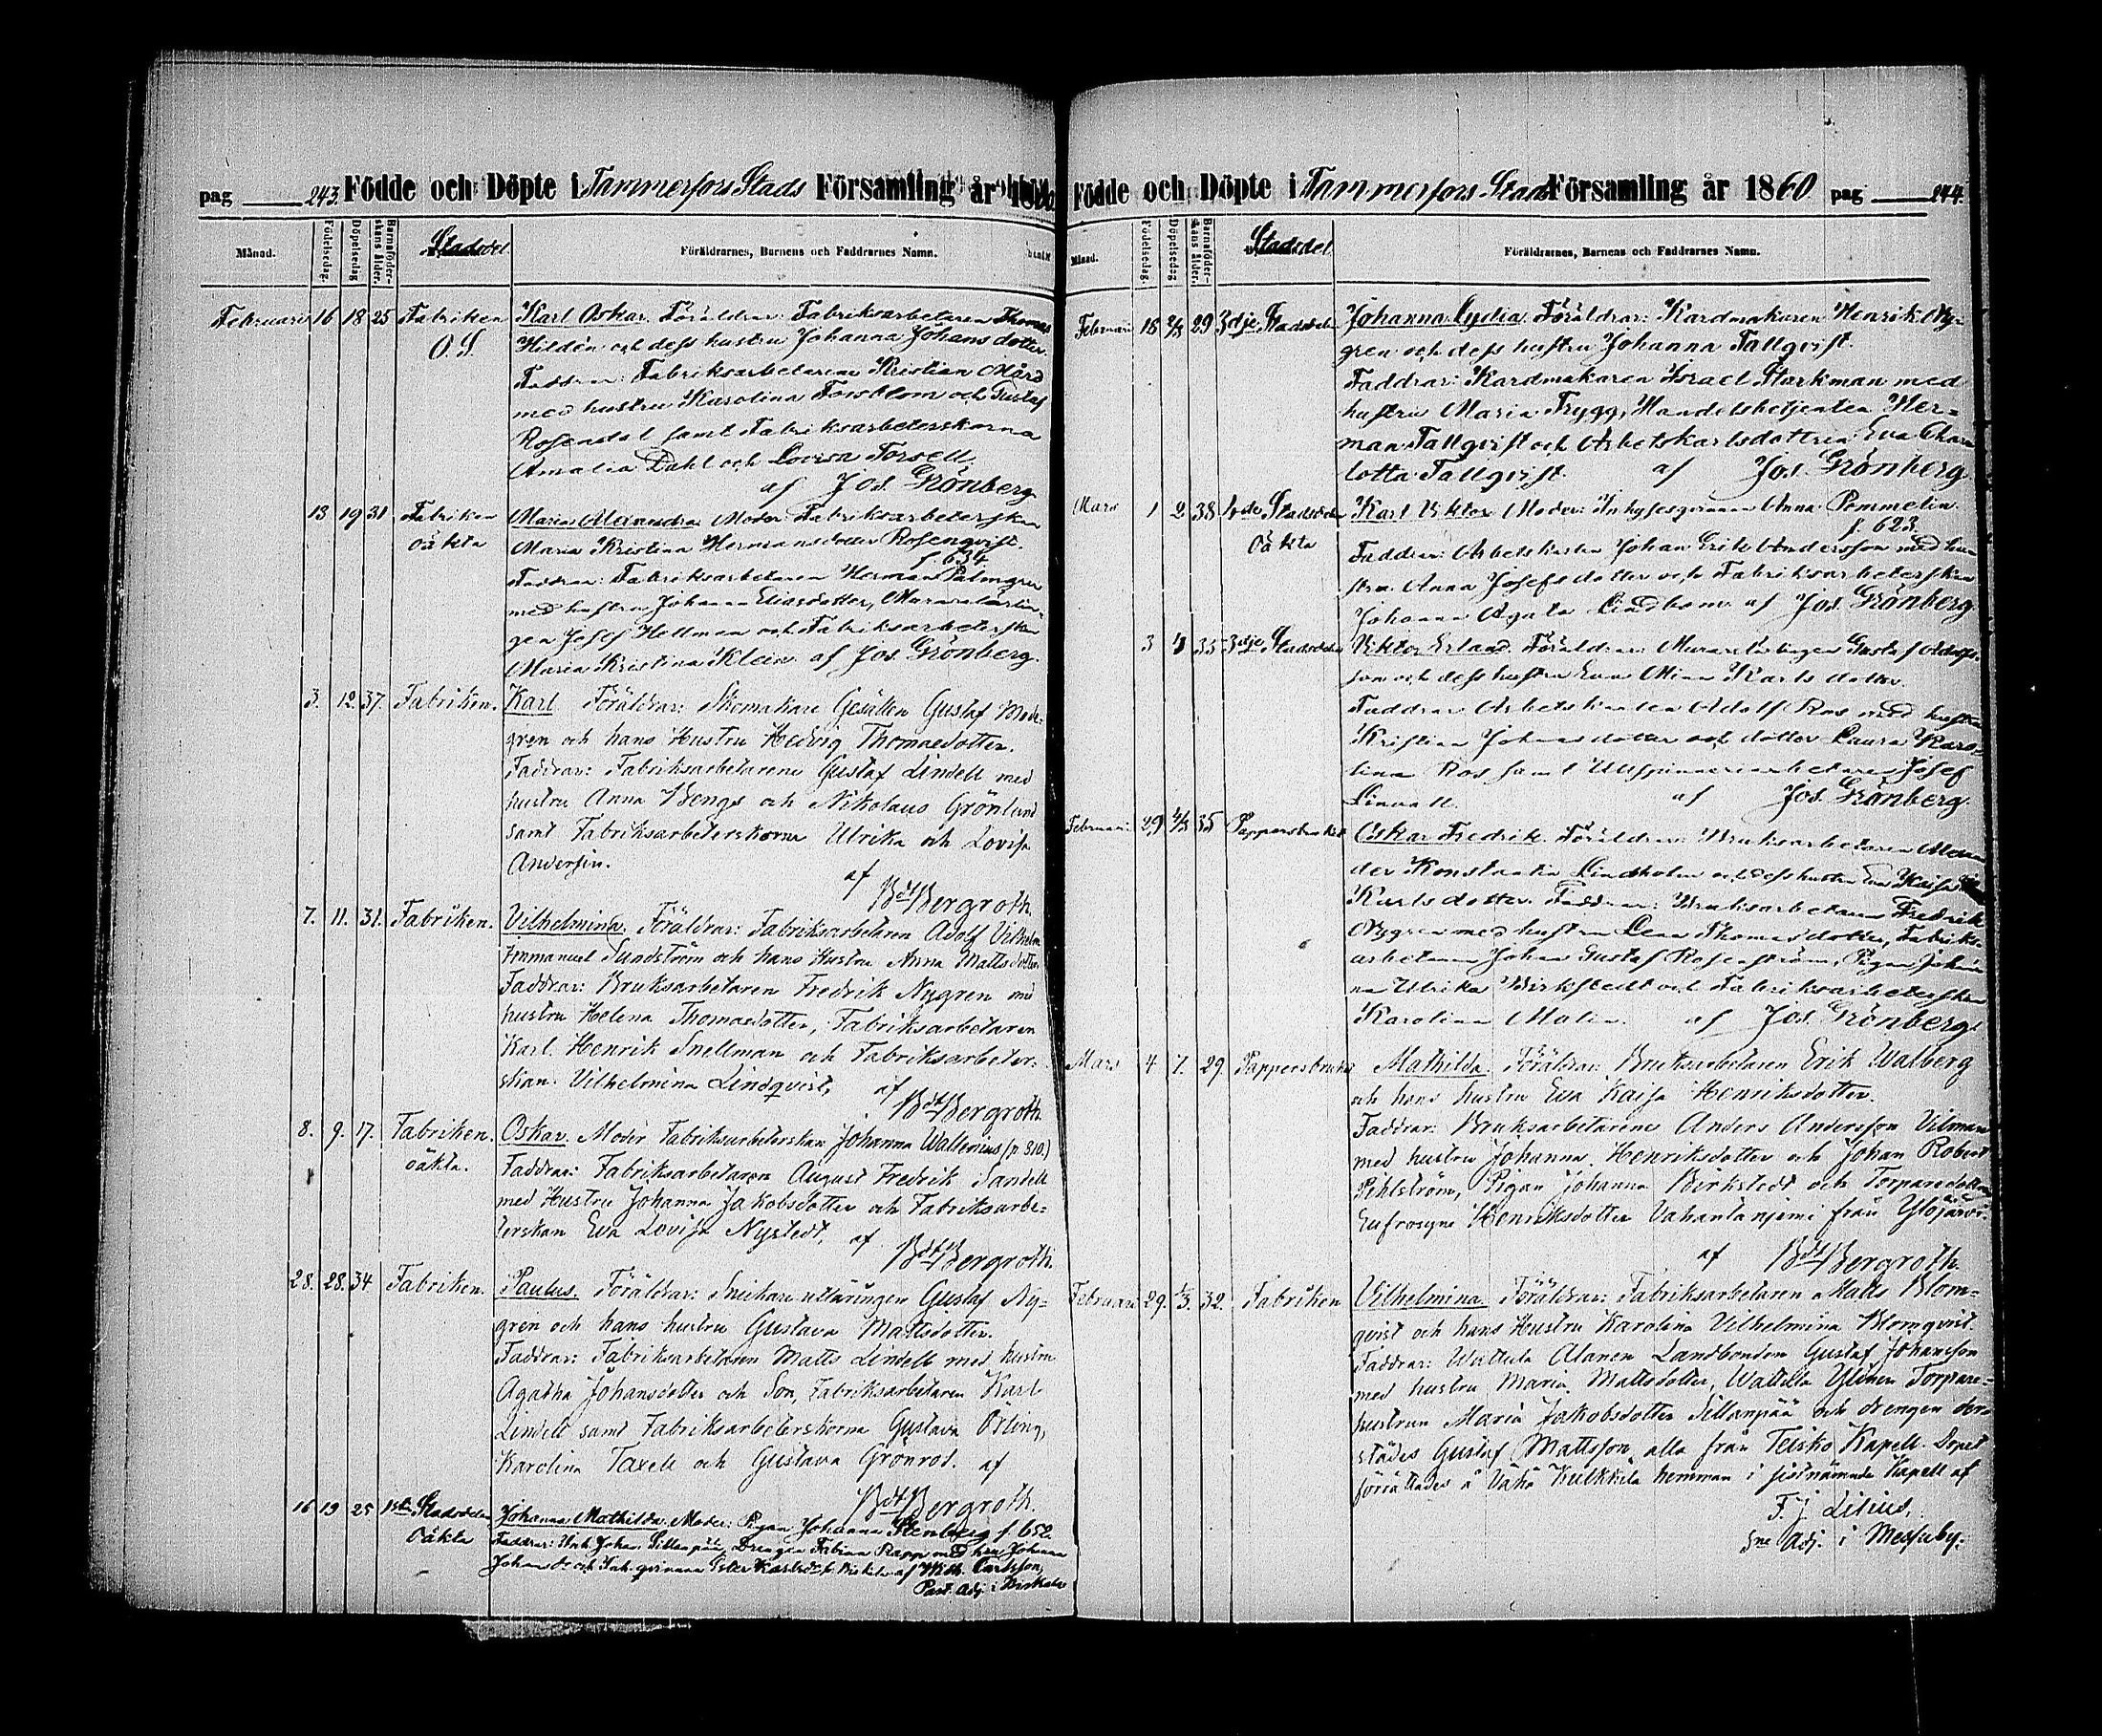 pag 243. Födde och Döpte i Tammerfors Stads Församling år
Månad. Födelsedag. Döpelsedag Barnaföderskans ålder. Stadsdel. Föräldrarnes, Barnens och Faddrarnes Namn.
Februari 16 18 25 Fabriken Karl Oskar. Föräldrar: Fabriksarbetaren Thomas
O. S. Hildén och dess hustru Johanna Johansdotter.
Faddrar: Fabriksarbetarene Kristian Mård
med hustru Karolina Forsblom och Gustaf
Rosendal samt Fabriksarbeterskorna
Amalia Dahl och Lovisa Forsell.
af Jos. Grönberg
13 19 31 Fabriken Maria Alexandra Moder Fabriksarbeterskan
oäkta Maria Kristina Hermansdotter Rosenqvist.
f. 634
Faddrar: Fabriksarbetaren Herman Palmgren
med hustru Johanna Eliasdotter, Murarelärlin-
gen Josef Hellman och Fabriksarbeterskan
Maria Kristina Klein. af Jos. Grönberg.
3. 12. 37. Fabriken. Karl Föräldrar: Skomakare Gesällen Gustaf Mode-
gren och hans Hustru Hedvig Thomasdotter.
Faddrar: Fabriksarbetarene Gustaf Lindell med
hustru Anna Bengs och Nikolaus Grönlund
samt Fabriksarbeterskorna Ulrika och Lovisa
Andersin.
af Bdt Bergroth.
7. 11. 31. Fabriken. Vilhelmina. Föräldrar: Fabriksarbetaren Adolf Vilhelm
Immanuel Sundström och hans Hustru Anna Mattsdotter.
Faddrar: Bruksarbetaren Fredrik Nygren med
hustru Helena Thomasdotter, Fabriksarbetaren
Karl Henrik Snellman och Fabriksarbeter-
skan Vilhelmina Lindqvist, af
Bdt Bergroth.
8. 9. 17. Fabriken. Oskar. Moder Fabriksarbeterskan Johanna Wallenius (p. 810.)
oäkta. Faddrar: Fabriksarbetaren August Fredrik Sandell
med Hustru Johanna Jakobsdotter och Fabriksarbe-
terskan Eva Lovisa Nystedt, af
Bdt Bergroth.
28. 28. 34 Fabriken. Paulus. Föräldrar: Snickare utläringen Gustaf Ny-
gren och hans hustru Gustava Mattsdotter.
Faddrar: Fabriksarbetaren Matts Lindell med hustru
Agatha Johansdotter och Son, Fabriksarbetaren Karl
Lindell samt Fabriksarbeterskorna Gustava Örling,
Karolina Taxell och Gustava Grönros. af
Bdt Bergroth.
16 19 25 1sta Stadsdelen Johanna Mathilda. Moder: Pigan Johanna Stenberg f. 652
oäkta Faddrar: Inh. Johan Sillanpää, Drengen Fabian Rappi med hru Johanna
Johansd. och Inh. qvinnan Ester Karlsd. fr. Birkala af Wilh. Carlsson,
Past. Adj. i Birkala
Födde och Döpte i Tammerfors Stads Församling år 1860 pag 244.
Månad. Födelsedag. Döpelsedag Barnaföderskans ålder. Stadsdel Föräldrarnes, Barnens och Faddrarnes Namn.
Februari 18 2/3 29 3dje Stadsdelen Johanna Lydia. Föräldrar: Kardmakaren Henrik Ny-
gren och dess hustru Johanna Tallqvist.
Faddrar: Kardmakaren Israel Starkman med
hustru Maria Trygg, Handelsbetjenten Her-
man Tallqvist och Arbetskarlsdottren Eva Char-
lotta Tallqvist. af Jos. Grönberg
Mars 1 2 38 4de Stadsdelen Karl Viktor Moder: Inhysesqvinnan Anna Pommelin
f. 623.
oäkta Faddrar: Arbetskarlen Johan Erik Andersson med hu-
stru Anna Josefsdotter och Fabriksarbeterskan
Johanna Agata Lindbom. af Jos. Grönberg
3 4 35 3dje Stadsdelen Viktor Erland. Föräldrar: Murarelärlingen Gustaf Adolfs-
son och dess hustru Eva Mina Karlsdotter.
Faddrar Arbetskarlen Adolf Ros med hustru
Kristina Johansdotter och dotter Laura Karo-
lina Ros samt Ullspinneriarbetaren Josef
Linvall. af Jos. Grönberg.
Februari 29 4/3 35 Pappersbruket Oskar Fredrik. Föräldrar: Bruksarbetaren Alexan-
der Konstantin Lindholm och dess hustru Eva Kaisa
Karlsdotter. Faddrar: Bruksarbetaren Fredrik
Nygren med hustru Lena Thomasdotter, Fabriks-
arbetaren Johan Gustaf Rosenström, Pigan Johan-
na Ulrika Birkstedt och Fabriksarbeterskan
Karolina Malin. af Jos. Grönberg.
Mars 4 7. 29. Pappersbruket Mathilda. Föräldrar: Bruksarbetaren Erik Walberg
och hans hustru Eva Kaisa Henriksdotter.
Faddrar: Bruksarbetarene Anders Andersson Vilman
med hustru Johanna Henriksdotter och Johan Robert
Pihlström, Pigan Johanna Birkstedt och Torparedottern
Eufrosyne Henriksdotter Vahantaniemi från Ylöjärvi.
af Bdt Bergroth.
Februari 29. 1/3. 32. Fabriken Vilhelmina. Föräldrar: Fabriksarbetaren Matts Blom-
qvist och hans Hustru Karolina Vilhelmina Blomqvist.
Faddrar: Wattula Alanen Landbonden Gustaf Johansson
med hustru Maria Mattsdotter, Wattula Ylinen Torpare-
hustrun Maria Jakobsdotter Sillanpää och drengen der-
städes Gustaf Mattsson, alla från Teisko Kapell. Dopet
förrättades å Vähä Kulkkila hemman i sistnämnde Kapell af
F. J. Lilius,
Sne Adj. i Messuby.